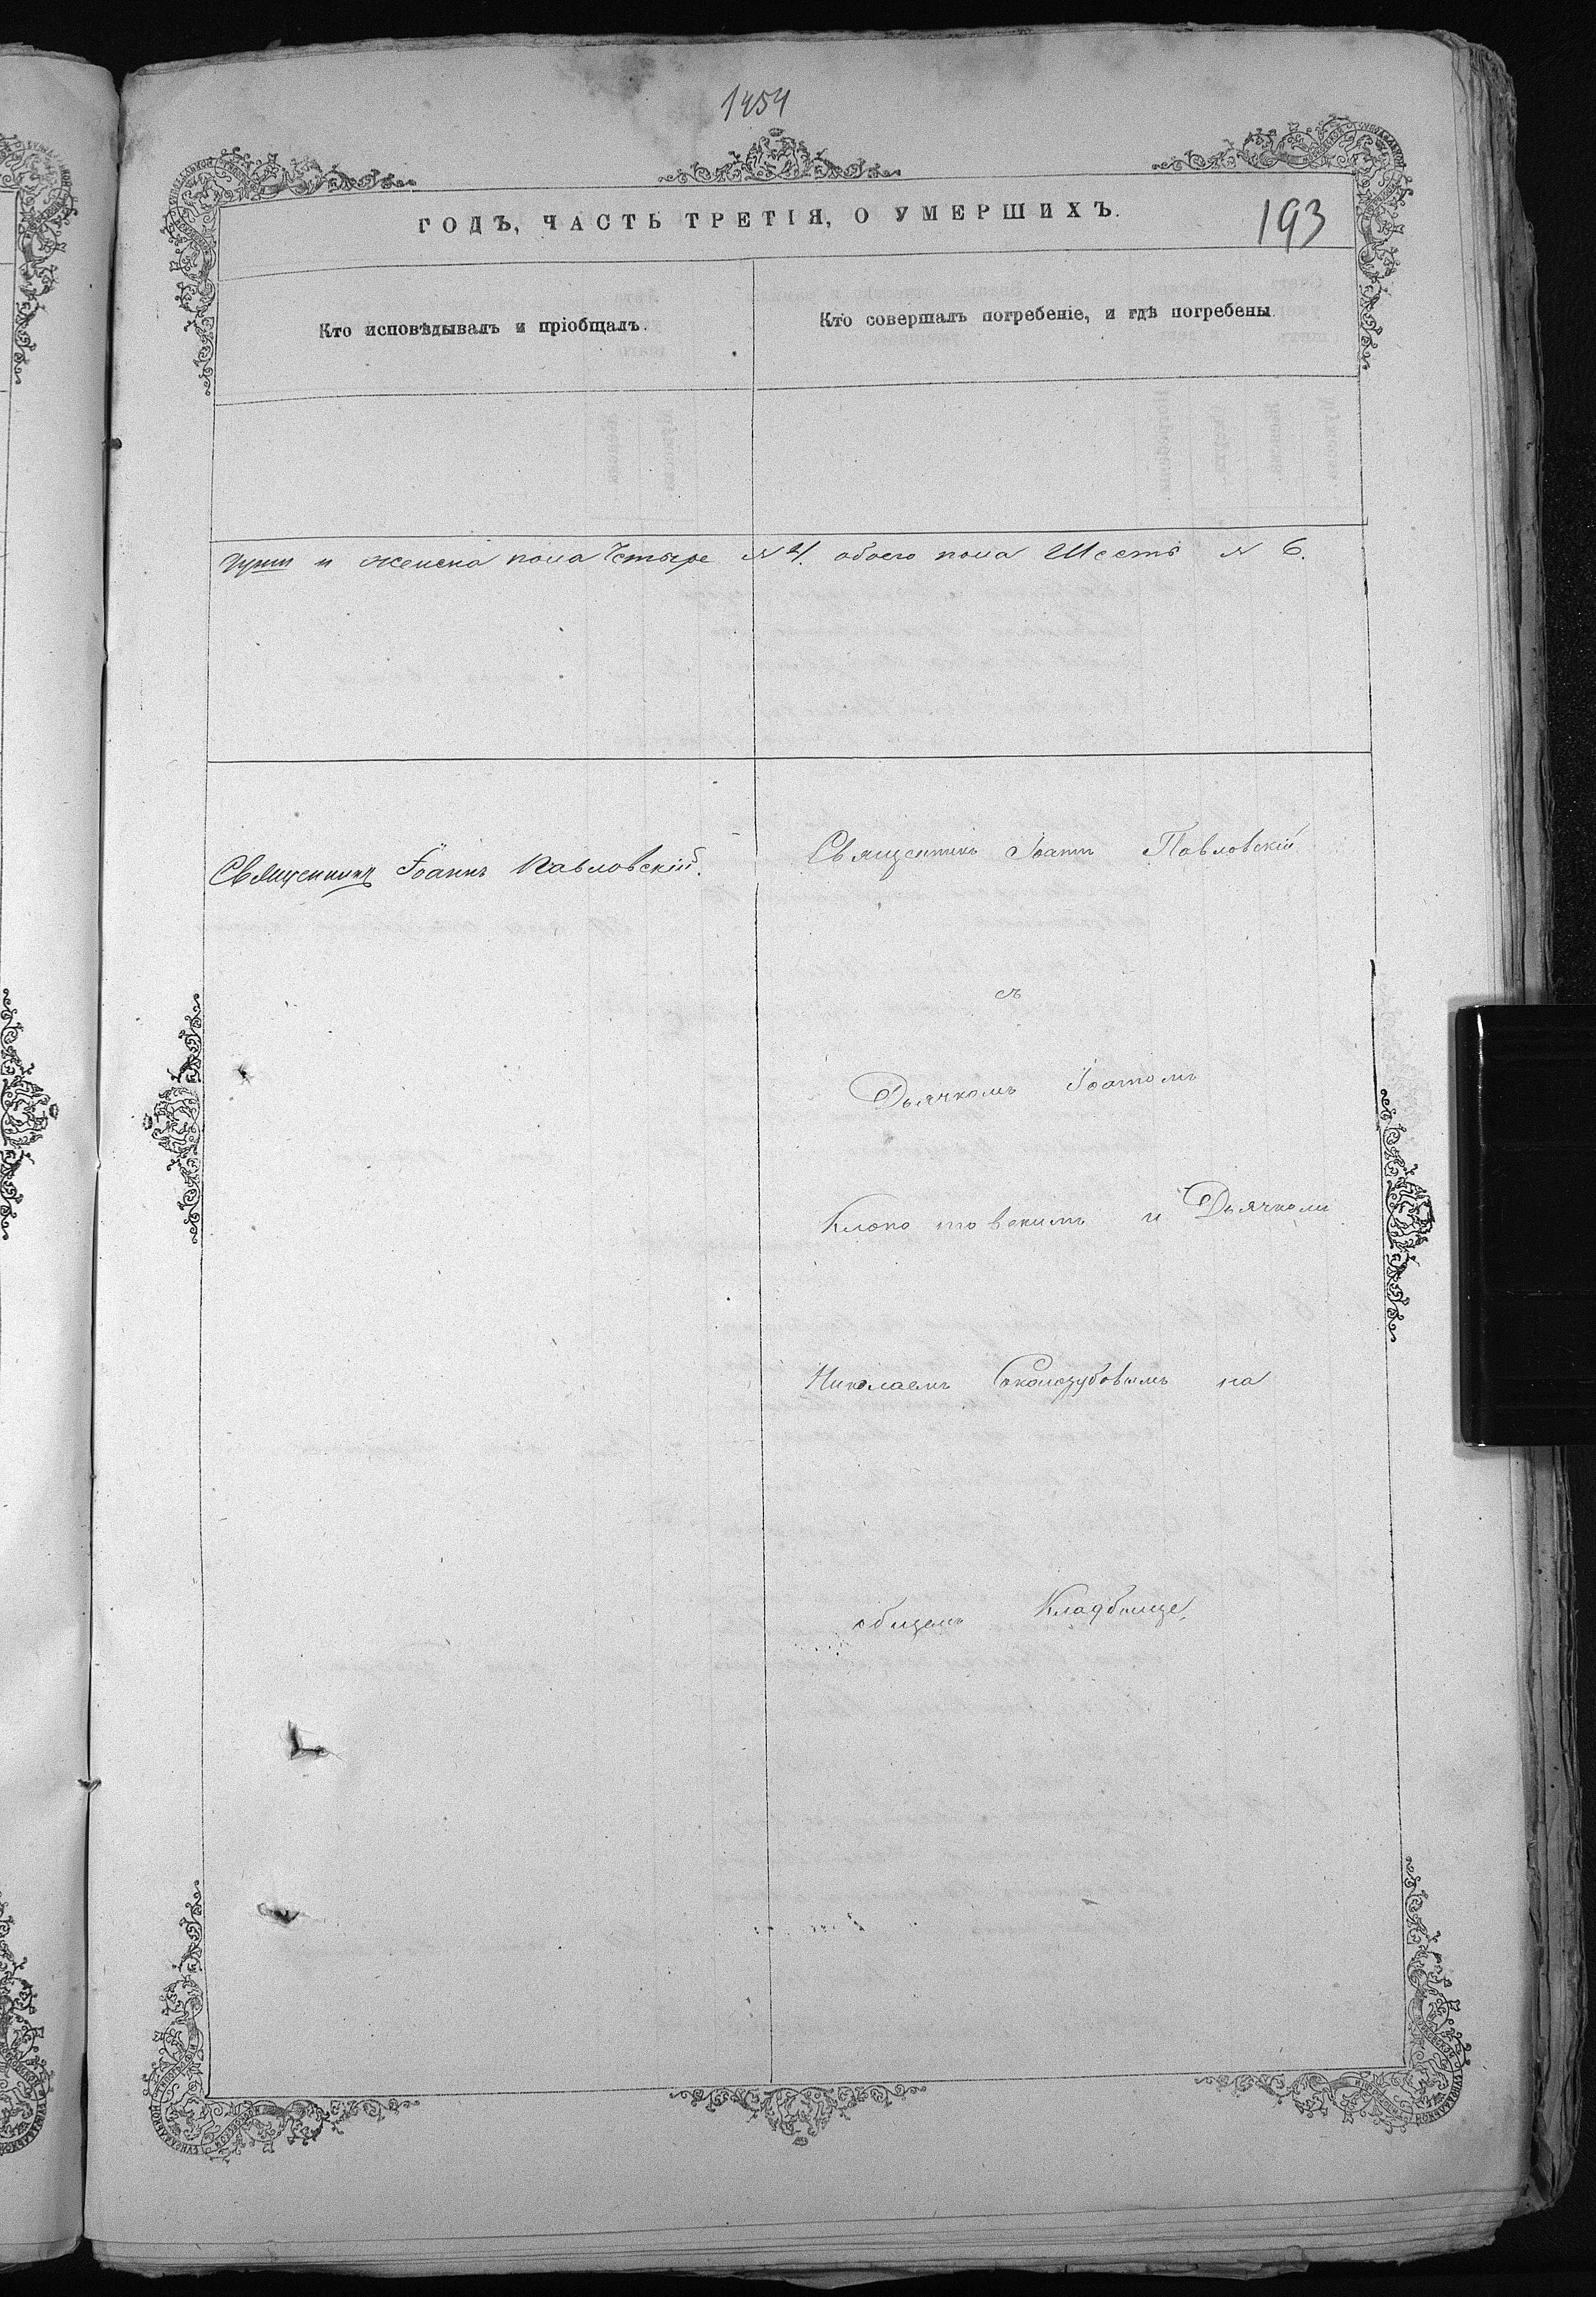 1454
ГОДЪ, ЧАСТЬ ТРЕТІЯ, О УМЕРШИХЪ.
193
Кто исповѣдывалъ и пріобщалъ.
Кто совершалъ погребеніе, и гдѣ погребены.
и женска пола Четыре № 4. обоего пола Шесть № 6.
Священникъ Іоаннъ Павловскій.
Священникъ Іоаннъ Павловскій
съ
Дьячкомъ Іоанномъ
Клопотовскимъ и Дьячкомъ
Николаемъ Соколозубовымъ на
общемъ Кладбище,